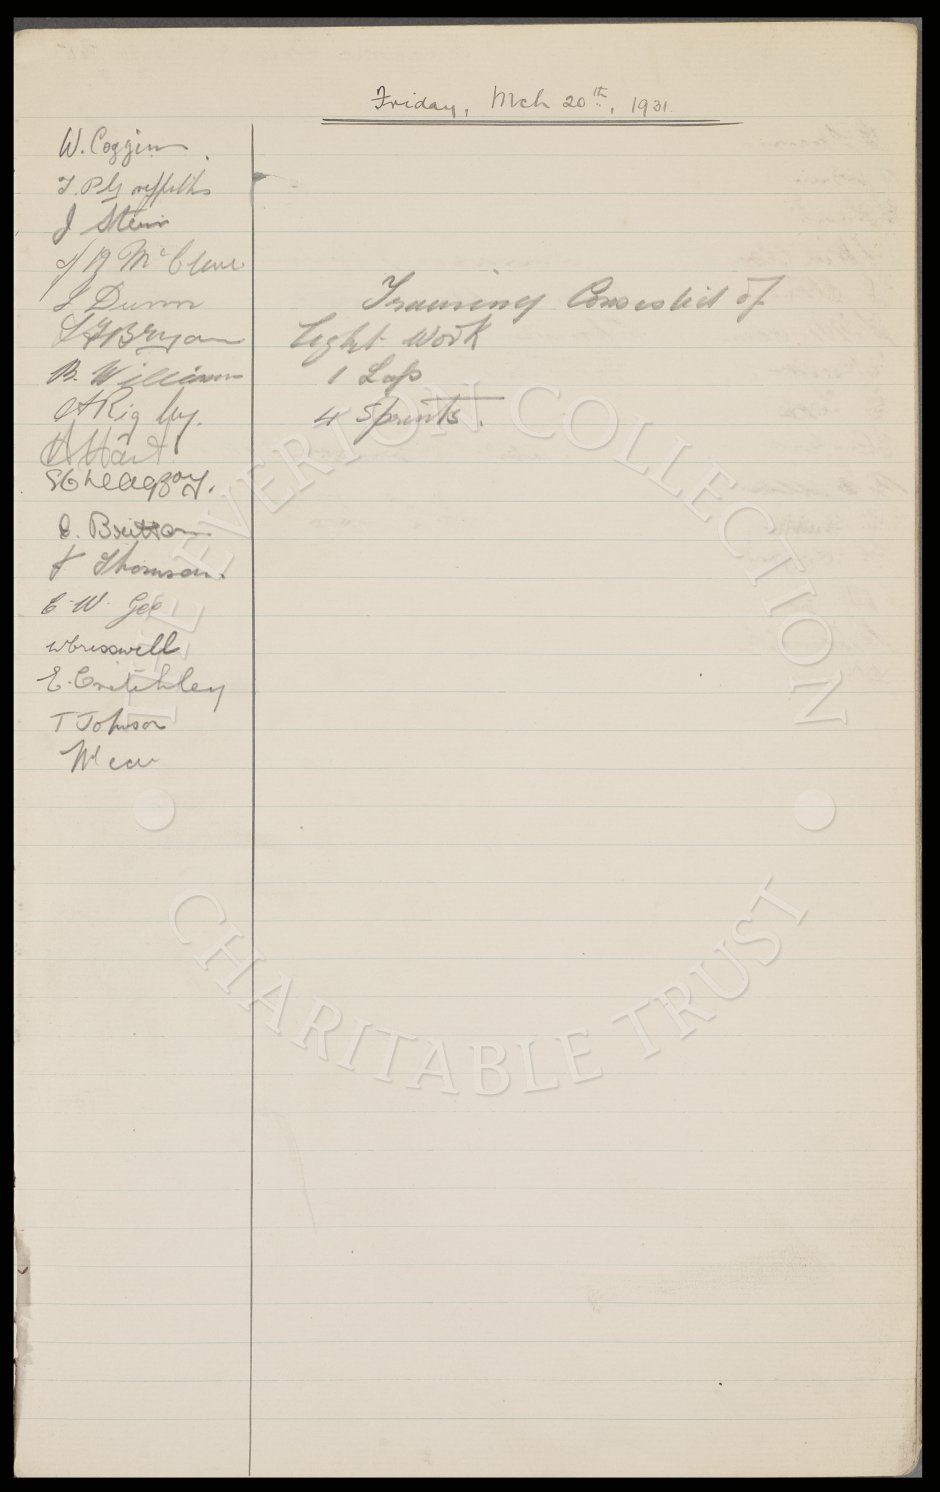 Friday, Mch 20th, 1931.
W. Coggins
T. P. Griffiths
J Stein
J H McClure
J Dunn
L F Bryan
B. Williams
A Rigby.
H Hart
E. Britton
J Thomson.
E. W. Gee
W Cresswell
E. Critchley
T Johnson
Training Consisted of
light work
1 Lap
4 Sprints.
THE EVERTON COLLECTION
CHARITABLE TRUST